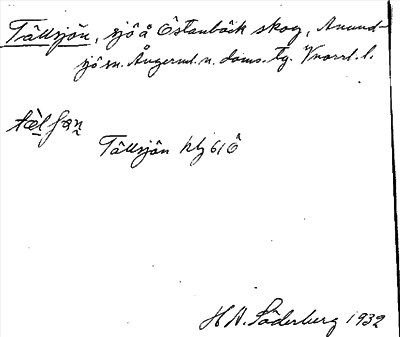 Tällsjön, sjö å Östanbäck skog, Anund-
sjö sn. Ångerml. n. doms. tg. Vnorrl. l.
Tällsjön hbj 61 Ö
H A. Söderberg 1932